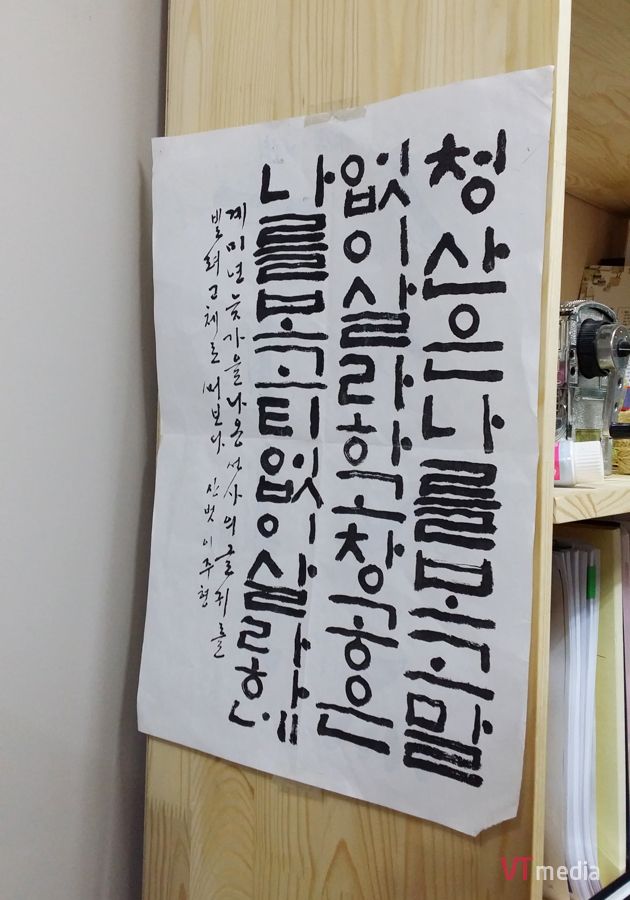 청산은나를보고말
없이살라하고창공은
나를보고티없이살라하네
계미년 늦가을 나옹 선사의 글귀를
빌려 고체로 써보다. 산벗 이주형
VTmedia